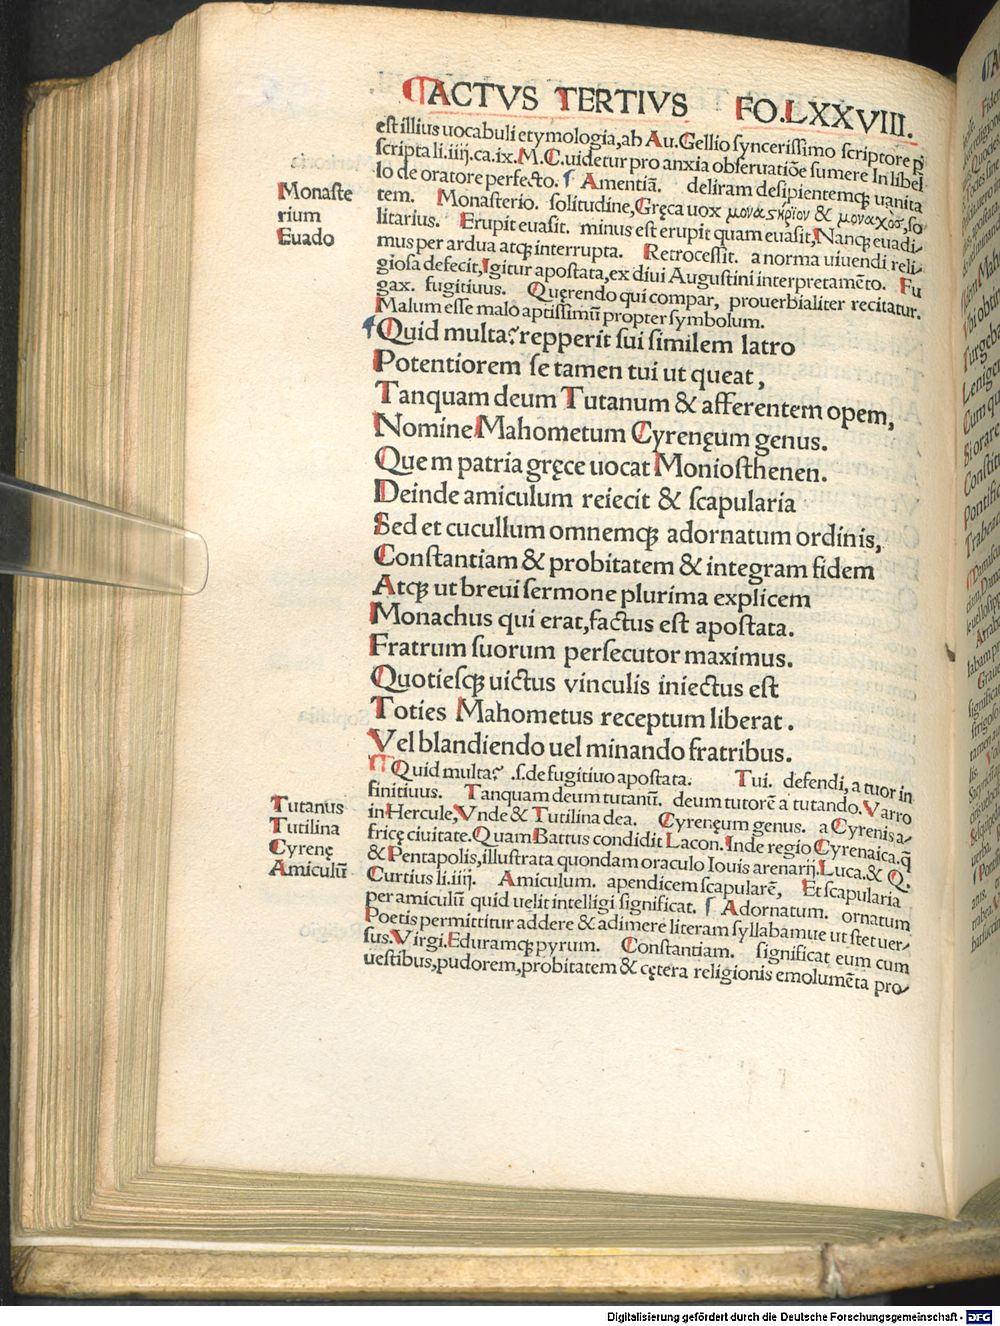 ACTVS TERTIVS FO.LXXVIII.
est illius uocabuli etymologia,ab Au.Gellio syncerissimo scriptore p̄
scripta li.iiij.ca.ix.M.C.uidetur pro anxia obseruatiōe sumere In libel
lo de oratore perfecto. Amentiā. deliram desipientemqꝫ uanita
Monaste
tem. Monasterio. solitudine,Gręca uox & so
rium
litarius. Erupit euasit. minus est erupit quam euasit,Nanqꝫ euadi⸗
Euado
mus per ardua atqꝫ interrupta. Retrocessit. a norma uiuendi reli⸗
giosa defecit,Igitur apostata,ex diui Augustini interpretamēto. Fu
gax. fugitiuus. Quęrendo qui compar, prouerbialiter recitatur.
Malum esse malo aptissimū propter symbolum.
Quid multa? repperit sui similem latro
Potentiorem se tamen tui ut queat,
Tanquam deum Tutanum & afferentem opem,
Nomine Mahometum Cyrenęum genus.
Quem patria gręce uocat Moniosthenen.
Deinde amiculum reiecit & scapularia
Sed et cucullum omnemqꝫ adornatum ordinis,
Constantiam & probitatem & integram fidem
Atqꝫ ut breui sermone plurima explicem
Monachus qui erat,factus est apostata.
Fratrum suorum persecutor maximus.
Quotiesqꝫ uictus vinculis iniectus est
Toties Mahometus receptum liberat.
Vel blandiendo uel minando fratribus.
Quid multa? .s.de fugitiuo apostata. Tui. defendi,a tuor in
finitiuus. Tanquam deum tutanū. deum tutorē a tutando.Varro
Tutanus
in Hercule,Vnde & Tutilina dea. Cyrenęum genus. a Cyrenis a⸗
Tutilina
fricę ciuitate.Quam Battus condidit Lacon.Inde regio Cyrenaica.q̄
Cyrenę
& Pentapolis,illustrata quondam oraculo Iouis arenarij.Luca.& Q.
Amiculū
Curtius li.iiij. Amiculum. apendicem scapularē, Et scapularia
per amiculū quid uelit intelligi significat. Adornatum. ornatum
Poetis permittitur addere & adimere literam syllabamue ut stet uer⸗
sus.Virgi.Eduramqꝫ pyrum. Constantiam. significat eum cum
uestibus,pudorem,probitatem & cętera religionis emolumēta pro⸗
Digitalisierung gefördert durch die Deutsche Forschungsgemeinschaft - DFG